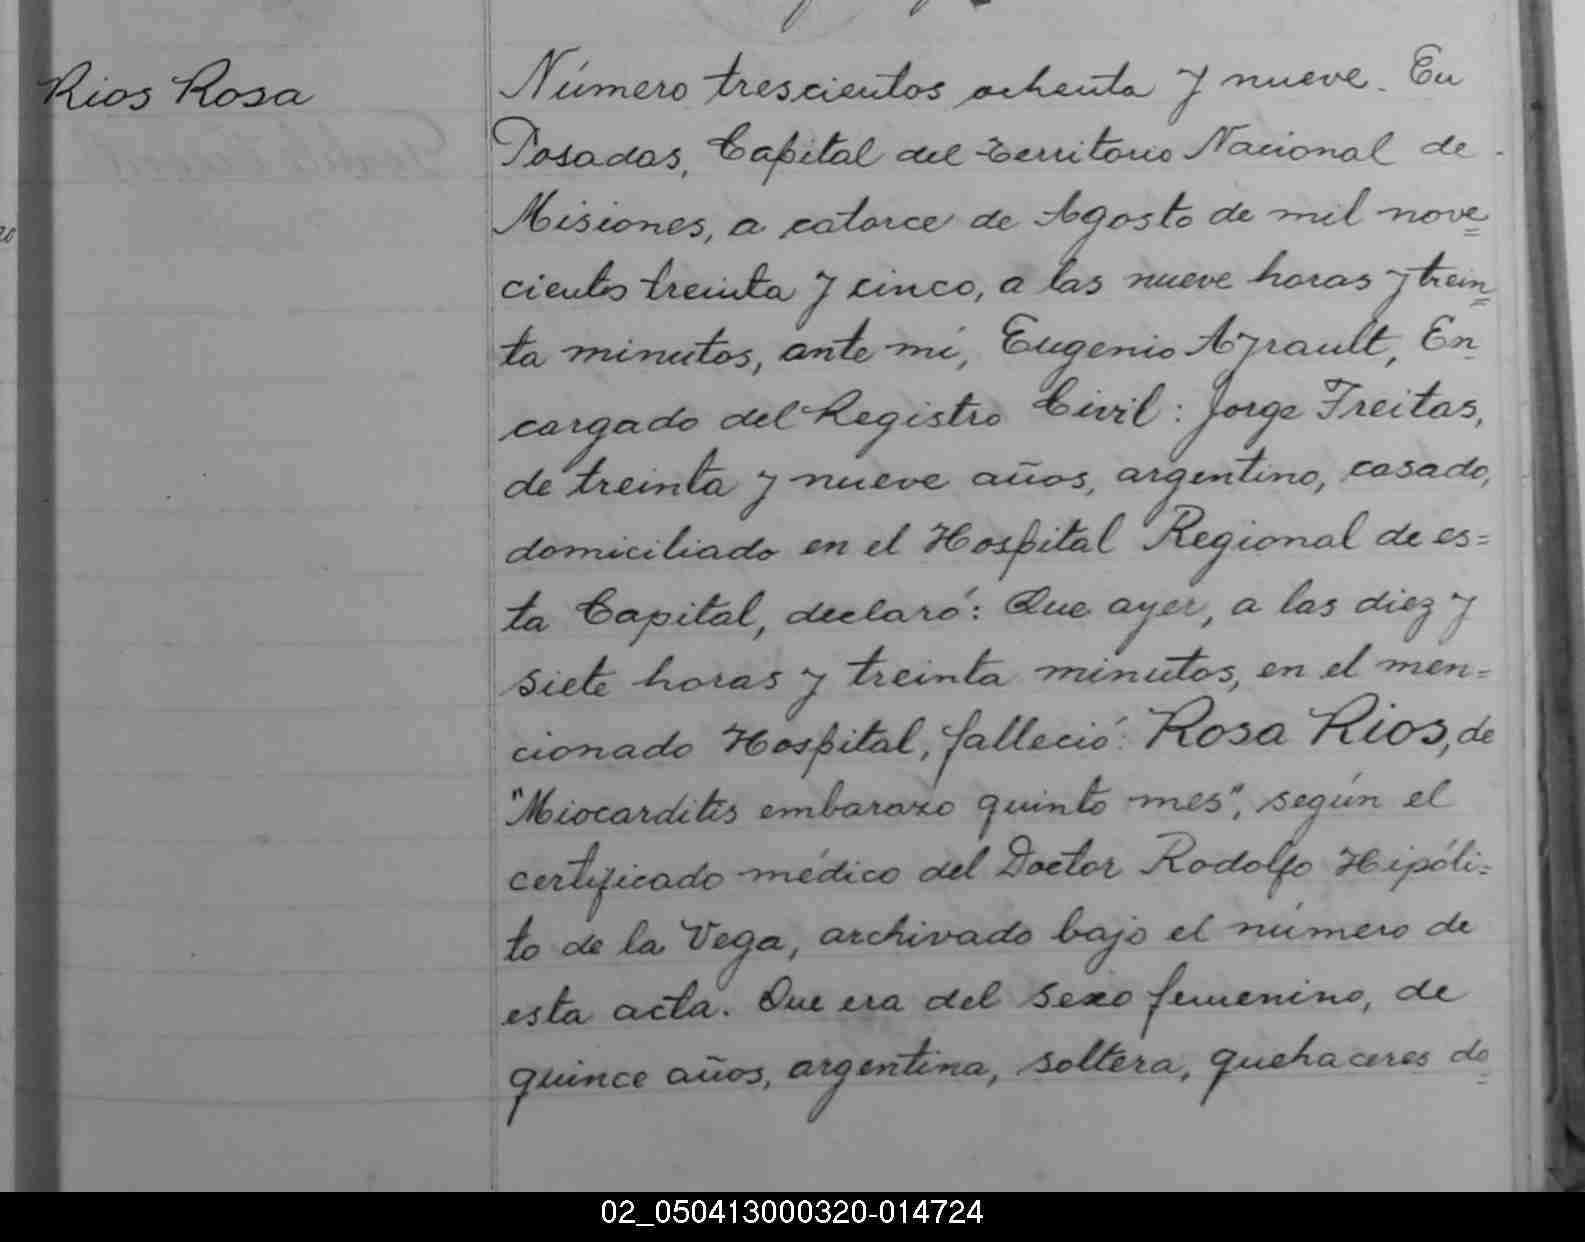 Rios Rosa
Número trescientos ochenta y nueve. En
Posadas, Capital del Territorio Nacional de
Misiones, a catorce de Agosto de mil nove
cientos treinta y cinco, a las nueve horas y trein
ta minutos, ante mí, Eugenio Ayrault, En
cargado del Registro Civil: Jorge Freitas,
de treinta y nueve años, argentino, casado,
domiciliado en el Hospital Regional de es=
ta Capital, declaró: Que ayer, a las diez y
siete horas y treinta minutos, en el men=
cionado Hospital, falleció: Rosa Rios, de
"Miocarditis embarazo quinto mes", según el
certificado médico del Doctor Rodolfo Hipóli=
to de la Vega, archivado bajo el número de
esta acta. Que era del sexo femenino, de
quince años, argentina, soltera, quehaceres do
02_050413000320-014724